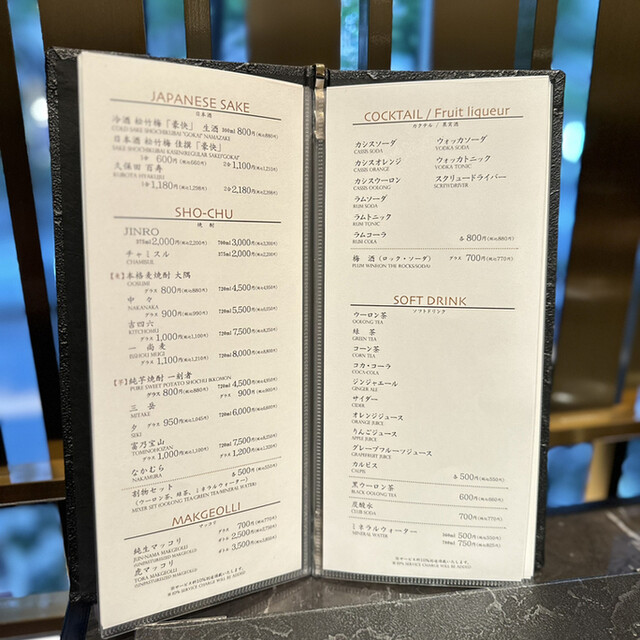 JAPANESE SAKE
日本酒
冷酒 松竹梅「豪快」 生酒 300ml 800円(税込880円)
日本酒 松竹梅 佳撰「豪快」
1合 600円(税込660円) 2合 1,100円(税込1,210円)
久保田 百寿
KUBOTA HYAKUJU
1合 1,180円(税込1,298円) 2合 2,180円(税込2,398円)
SHO-CHU
焼酎
JINRO
375ml 2,000円(税込2,200円) 700ml 3,000円(税込3,300円)
チャミスル 2,000円(税込2,200円)
CHAMISUR
【麦】本格麦焼酎 大隅
グラス 800円(税込880円) 720ml 4,500円(税込4,950円)
中々
NAKANAKA
グラス 900円(税込990円) 720ml 5,500円
吉四六
KITCHOMU
グラス 1,100円(税込1,210円) 720ml 7,500円
一尚麦
ISSHOU MUGI
グラス 1,100円(税込1,210円) 720ml 8,000円
【芋】純芋焼酎 一刻者
PURE SWEET POTATO SHOCHU IKKOMON
グラス 800円(税込880円) 720ml 4,500円
三岳
MITAKE
グラス 900円(税込990円)
夕
グラス 950円(税込1,045円) 720ml 6,000円
富乃宝山
TOMINOHOZAN
グラス 1,000円(税込1,100円) 720ml 7,500円
なかむら
NAKAMURA
グラス 1,100円 1,200円
割物セット 各 500円(税込550円)
(ウーロン茶、緑茶、ミネラルウォーター)
MIXER SET (OOLONG TEA/GREEN TEA/MINERAL WATER)
MAKGEOLLI
マッコリ
純生マッコリ グラス 700円(税込770円)
JUN-NAMA MAKGEOLLI
ボトル 2,500円
虎マッコリ ボトル 3,500円
TORA MAKGEOLLI
※サービス料10%を頂戴いたします。
※10% SERVICE CHARGE WILL BE ADDED
COCKTAIL / Fruit liqueur
カクテル / 果実酒
カシスソーダ ウォッカソーダ
CASSIS SODA VODKA SODA
カシスオレンジ ウォッカトニック
CASSIS ORANGE VODKA TONIC
カシスウーロン スクリュードライバー
CASSIS OOLONG SCREWDRIVER
ラムソーダ
RUM SODA
ラムトニック
RUM TONIC
ラムコーラ 各 800円(税込880円)
RUM COLA
梅酒(ロック・ソーダ) グラス 700円(税込770円)
PLUM WINE(ON THE ROCKS/SODA)
SOFT DRINK
ソフトドリンク
ウーロン茶
OOLONG TEA
緑茶
GREEN TEA
コーン茶
CORN TEA
コカ・コーラ
COCA-COLA
ジンジャエール
GINGER ALE
サイダー
CIDER
オレンジジュース
ORANGE JUICE
りんごジュース
APPLE JUICE
グレープフルーツジュース
GRAPEFRUIT JUICE
カルピス
CALPIS
各 500円(税込550円)
黒ウーロン茶 600円(税込660円)
BLACK OOLONG TEA
炭酸水 700円(税込770円)
CLUB SODA
ミネラルウォーター 500円(税込550円)
MINERAL WATER 750円(税込825円)
※サービス料10%を頂戴いたします。
※10% SERVICE CHARGE WILL BE ADDED